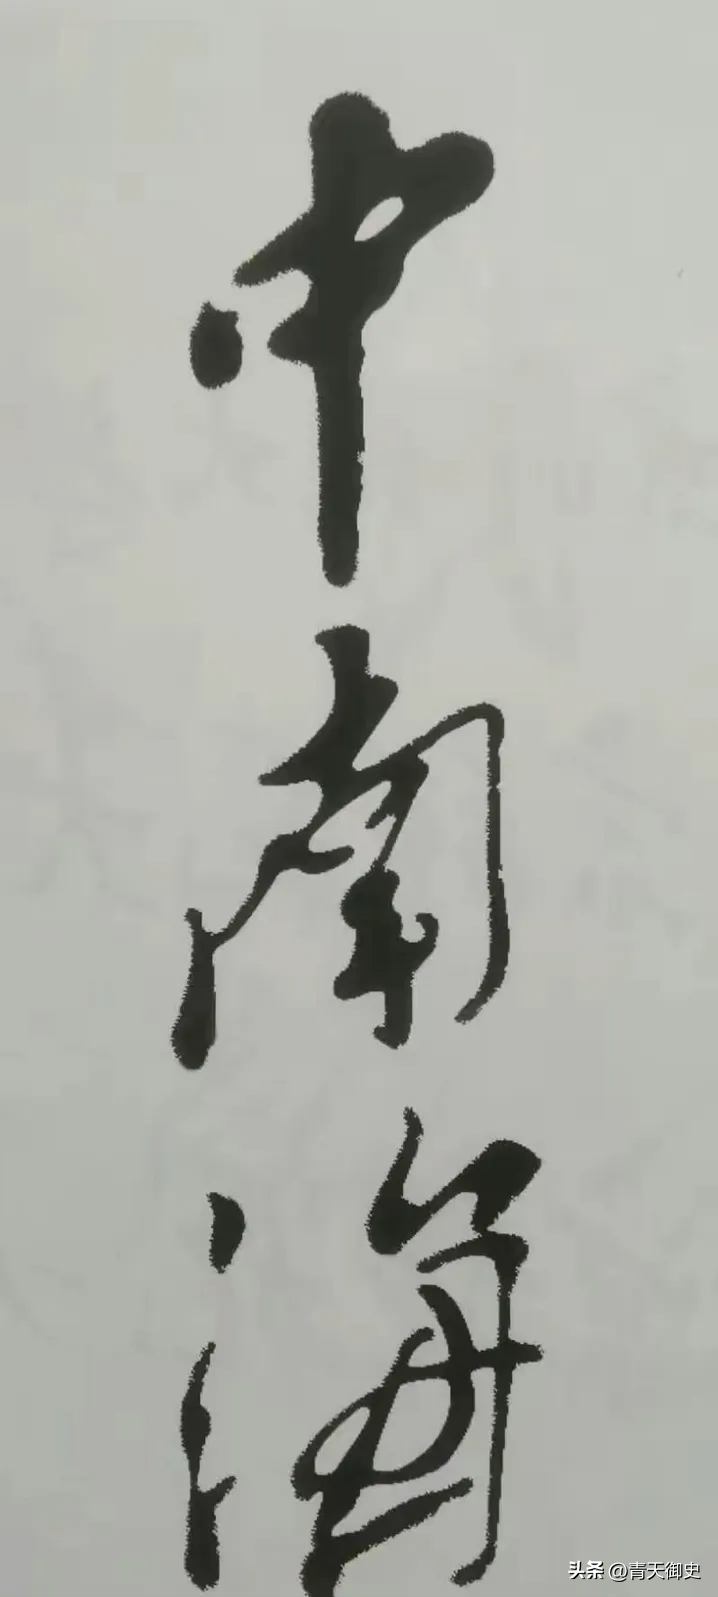 中南海
头条 @青天御史